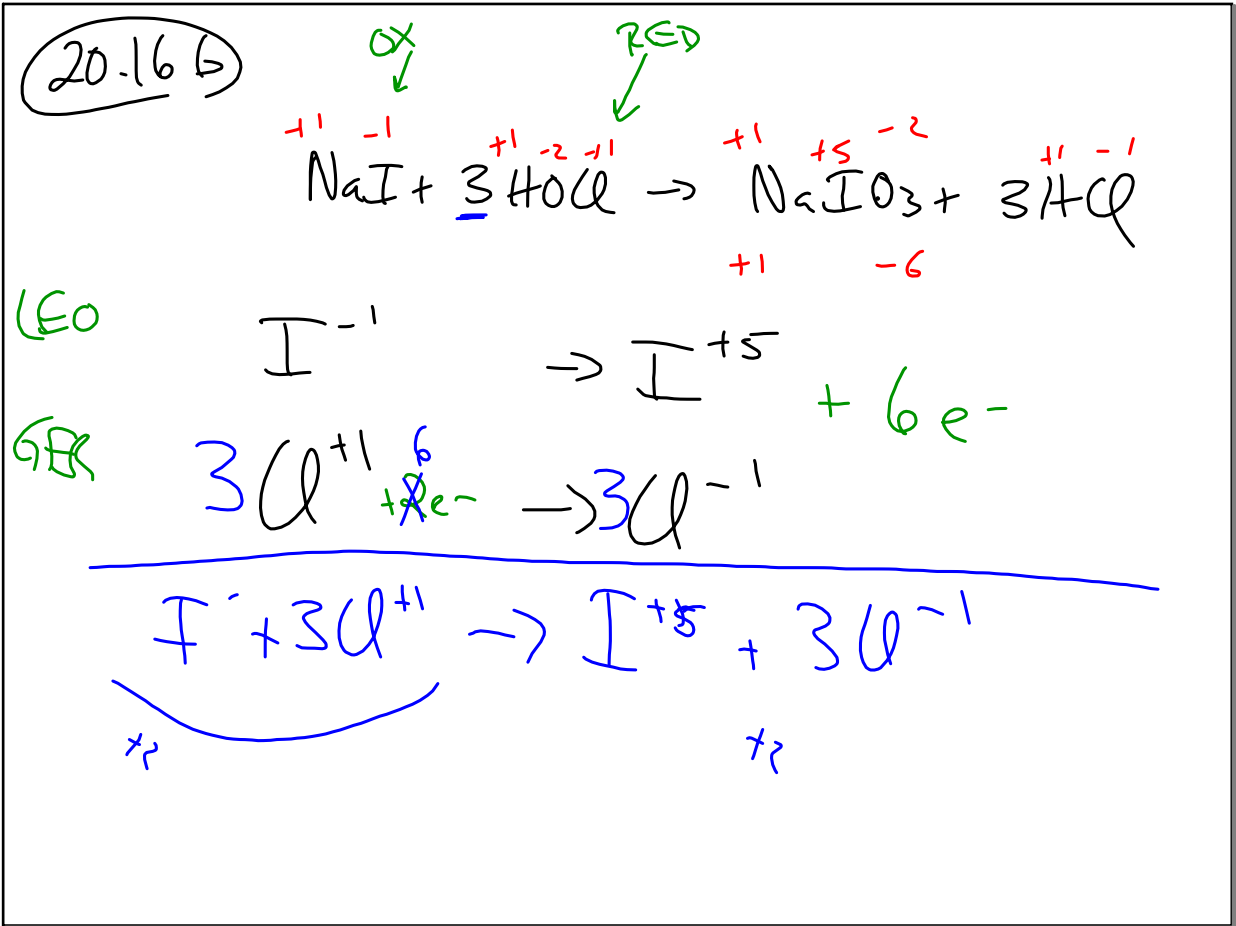 20.16 b
OX RED
+1 -1 +1 -2 +1 +1 +5 -2 +1 -1
NaI + 3HOCl → NaIO₃ + 3HCl
+1 -6
LEO I⁻¹ → I⁺⁵ + 6e⁻
GER 3Cl⁺¹ + 6e⁻ → 3Cl⁻¹
I⁻ + 3Cl⁺¹ → I⁺⁵ + 3Cl⁻¹
+2 +2